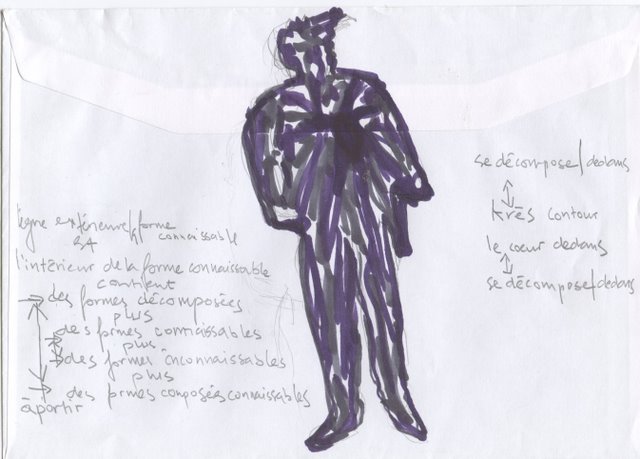 ligne extérieure/forme
connaissable
l'intérieur de la forme connaissable
contient
des formes décomposées
plus
des formes connaissables
plus
des formes inconnaissables
plus
des formes composées connaissables
à partir
se décompose/dedans
très contour
le cœur dedans
se décompose/dedans